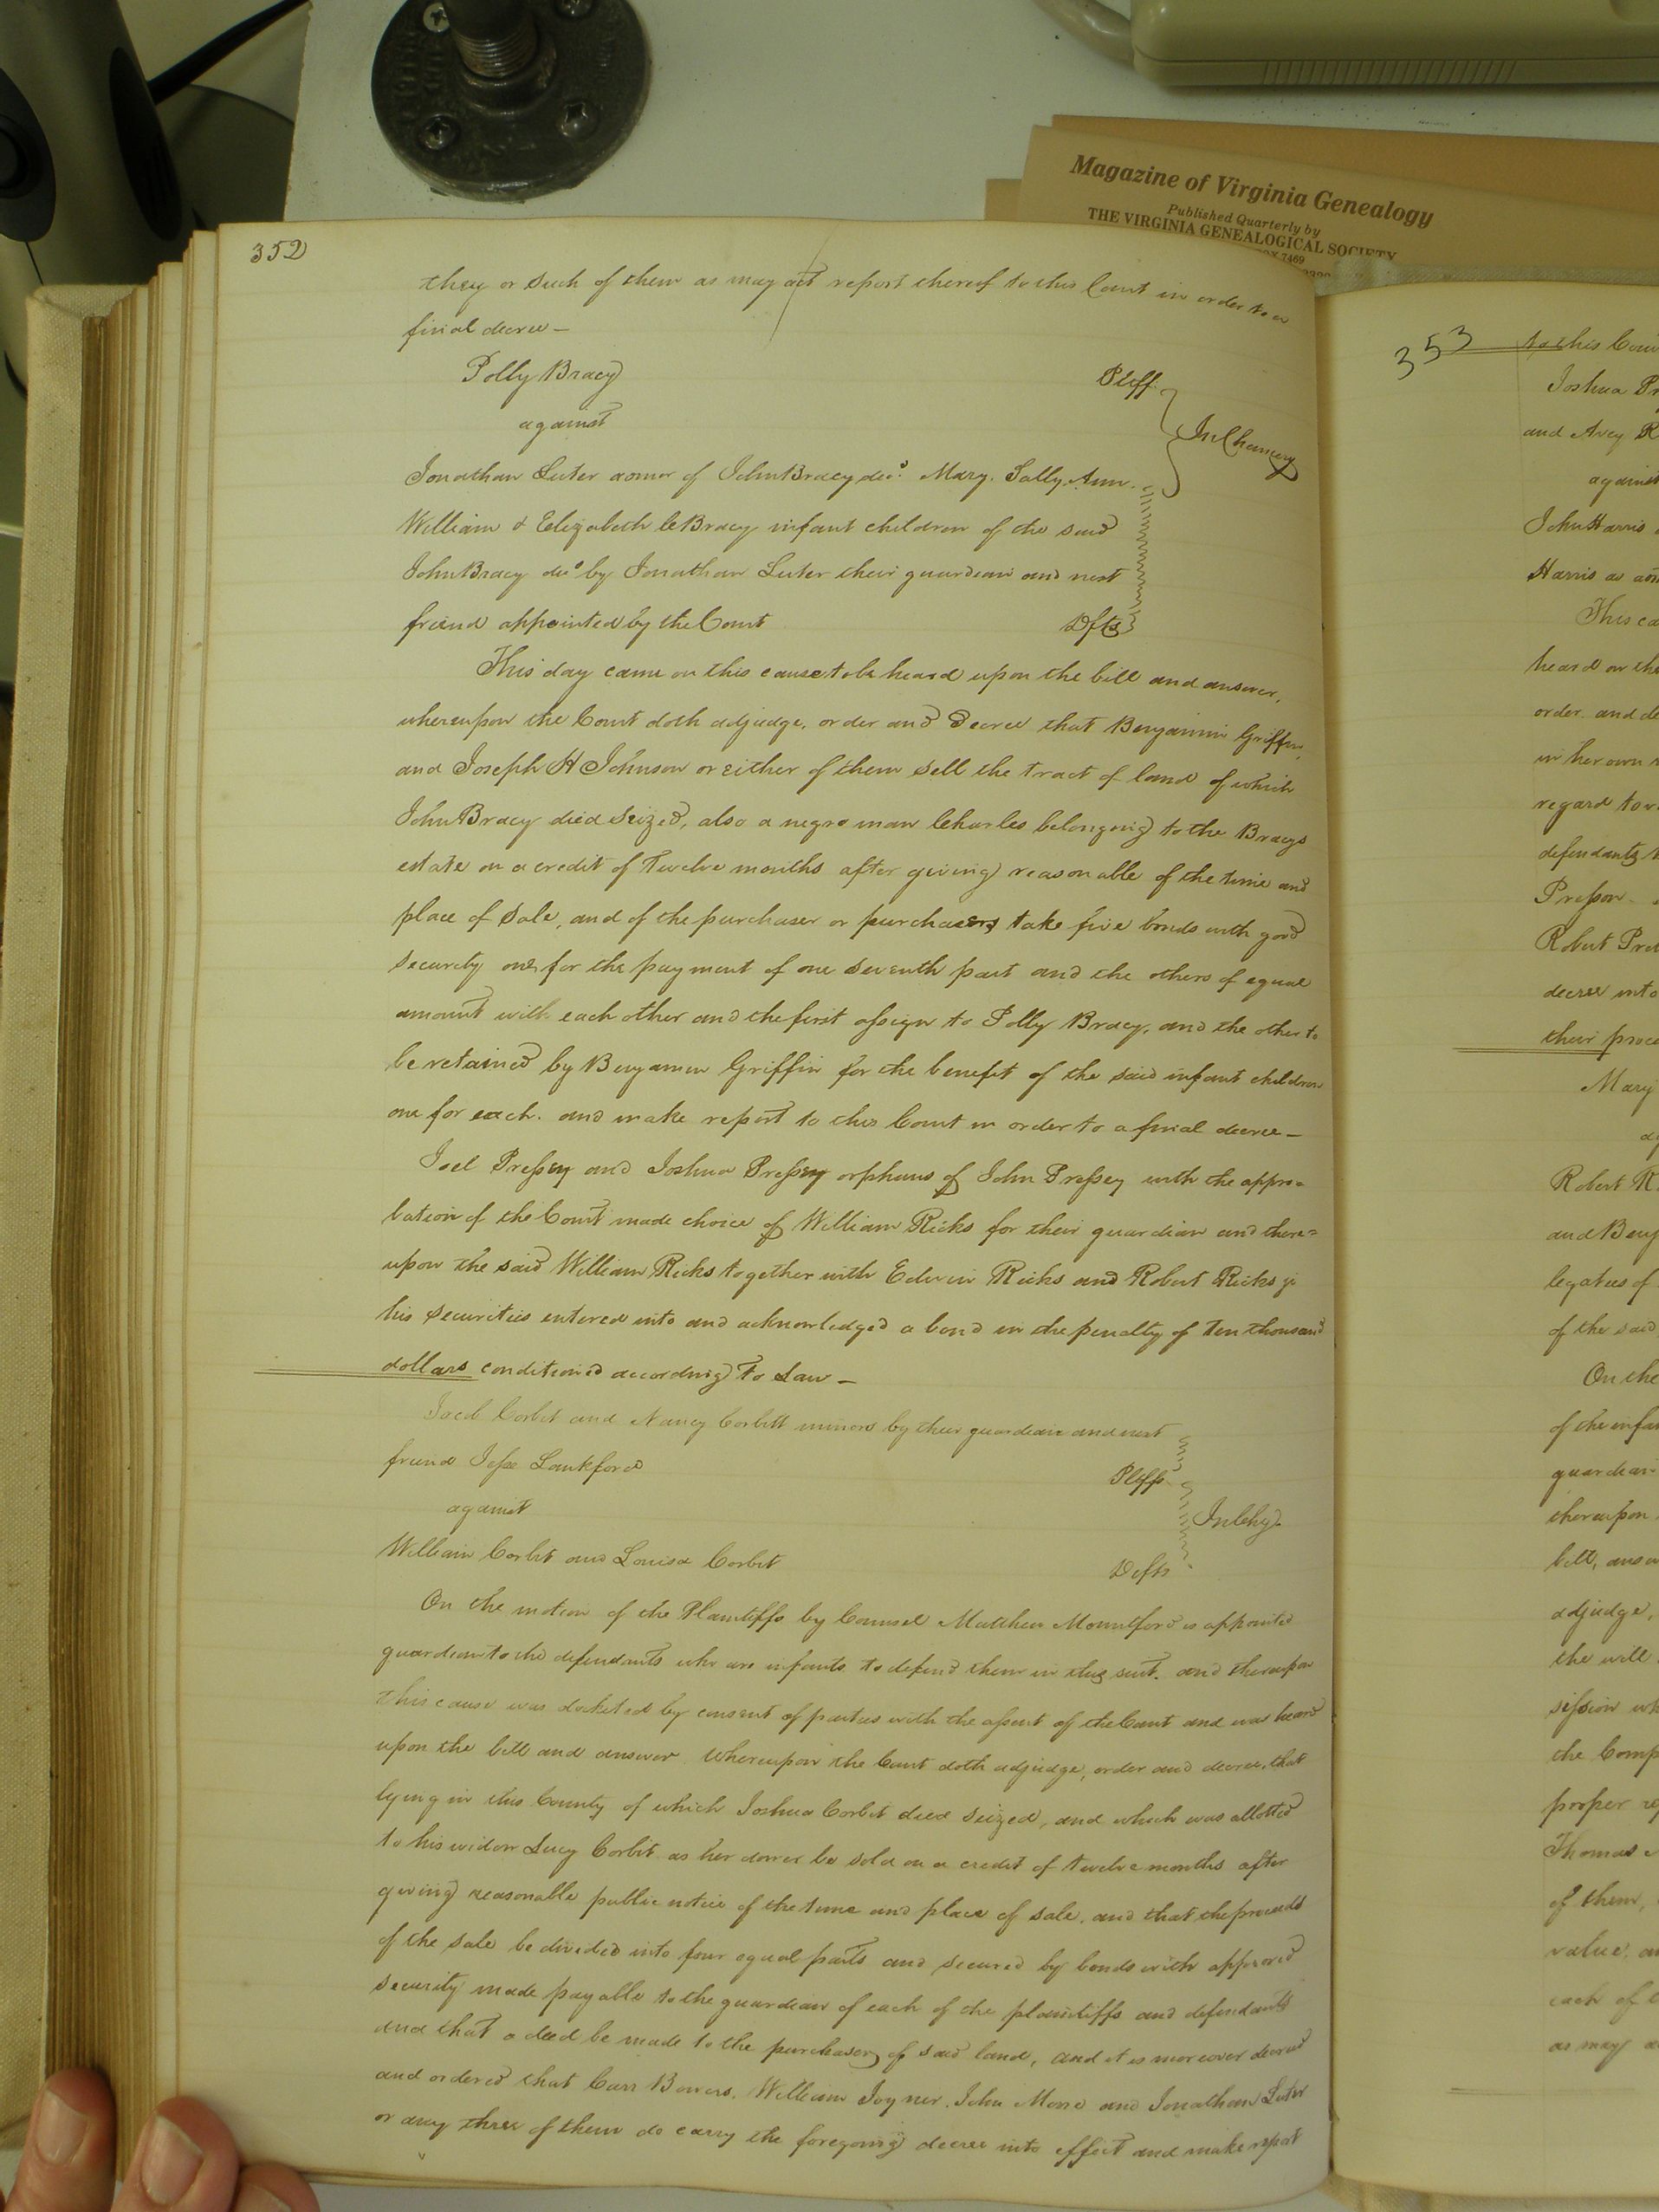 Magazine of Virginia Genealogy
Published Quarterly by
THE VIRGINIA GENEALOGICAL SOCIETY
7469
352
they or such of them as may act report thereof to this Court in order to a
final decree —
Polly Bracy Pltff.
against In Chancery
Jonathan Luter admor of John Bracy decd. Mary. Sally. Ann.
William & Elizabeth C Bracy infant children of the said
John Bracy decd by Jonathan Luter their guardian and next
friend appointed by the Court Dfts
This day came on this cause to be heard upon the bill and answer,
whereupon the Court doth adjudge, order and Decree that Benjamin Griffin
and Joseph H Johnson or either of them sell the tract of land of which
John Bracy died Seized, also a negro man Charles belonging to the Bracys
estate on a credit of Twelve months after giving reasonable of the time and
place of Sale, and of the purchaser or purchasers take five bonds with good
security one for the payment of one seventh part and the others of equal
amount with each other and the first assign to Polly Bracy, and the other to
be retained by Benjamin Griffin for the benefit of the said infant children
one for each. and make report to this Court in order to a final decree —
Joel Pressey and Joshua Pressey orphans of John Pressey with the appro=
bation of the Court made choice of William Ricks for their guardian and there=
upon the said William Ricks together with Edwin Ricks and Robert Ricks jr
his Securities entered into and acknowledged a bond in the penalty of Ten thousand
dollars conditioned according to Law —
Corbit and Nancy Corbitt minors by their guardian and next
friend Jesse Lankford Pltffs
against In Chy.
William Corbit and Louisa Corbit Defts
On the motion of the Plaintiffs by Counsel Matthew Mountford is appointed
guardian to the defendants who are infants to defend them in this suit. and thereupon
this cause was docketed by consent of parties with the assent of the Court and was heard
upon the bill and answer Whereupon the Court doth adjudge, order and decree, that
lying in this County of which Joshua Corbit died Seized, and which was allotted
to his widow Lucy Corbit as her dower be sold on a credit of twelve months after
giving reasonable public notice of the time and place of sale, and that the proceeds
of the sale be divided into four equal parts and secured by bonds with approved
security made payable to the guardian of each of the plaintiffs and defendants
and that a deed be made to the purchaser of said land, and it is moreover decreed
and ordered that Carr Bowers, William Joyner, John and Jonathan Luter
or any three of them do carry the foregoing decree into effect and make report
353
to this
Joshua
and Avey
against
John Harris
Harris as
This
heard on the
order and
in her own
regard to
defendants
Robert
decree into
their
Mary
Robert
and
legatees of
of the said
On the
of the
guardian
thereupon
bill,
adjudge,
the will
session
the
proper
Thomas
of them,
value,
each of
as may